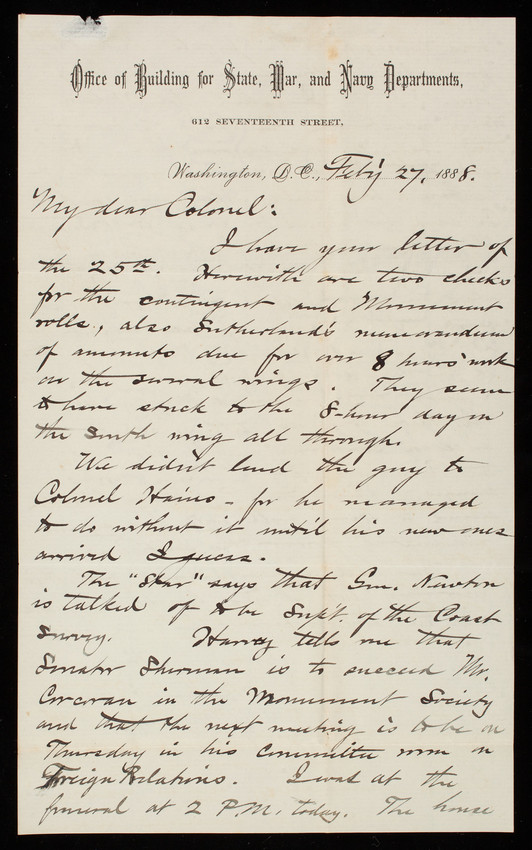 Office of Building for State, War, and Navy Departments,
612 SEVENTEENTH STREET,
Washington, D.C., Feb'y 27, 1888.
My dear Colonel:
I have your letter of
the 25th. Herewith are two checks
for the contingent and Monument
rolls, also Sutherland's memorandum
of amounts due for over 8 hours' work
on the several wings. They seem
to have stuck to the 8-hour day on
the south wing all through.
We didn't lend the guy to
Colonel Hains - for he managed
to do without it until his new ones
arrived I guess.
The "Star" says that Gen. Newton
is talked of to be Supt. of the Coast
Survey. Harvey tells me that
Senator Sherman is to succeed Mr.
Corcoran in the Monument Society
and that the next meeting is to be on
Thursday in his committee room on
Foreign Relations. I was at the
funeral at 2 P.M. today. The house